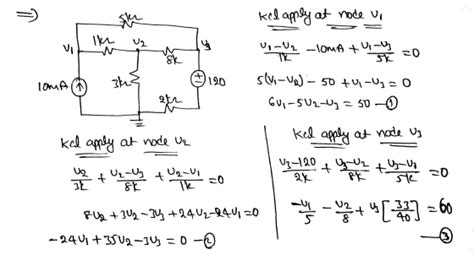 ⇒
5kΩ
V1 1kΩ V2 V3
8kΩ
10mA ↑ 3kΩ ± 120
2kΩ
kcl apply at node V1
(V1-V2)/1k - 10mA + (V1-V3)/5k = 0
5(V1-V2) - 50 + V1 - V3 = 0
6V1 - 5V2 - V3 = 50 -①
kcl apply at node V2
V2/3k + (V2-V3)/8k + (V2-V1)/1k = 0
8V2 + 3V2 - 3V3 + 24V2 - 24V1 = 0
-24V1 + 35V2 - 3V3 = 0 -②
kcl apply at node V3
(V3-120)/2k + (V3-V2)/8k + (V3-V1)/5k = 0
-V1/5 - V2/8 + V3[33/40] = 60
-③